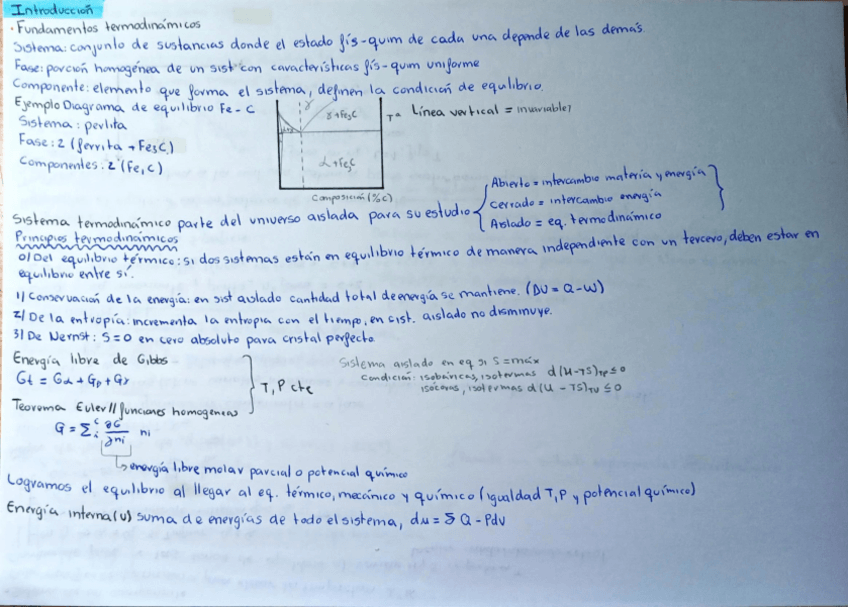 Introducción
· Fundamentos termodinámicos
Sistema: conjunto de sustancias donde el estado fís-quim de cada una depende de las demás
Fase: porción homogénea de un sist con características fís-quim uniforme
Componente: elemento que forma el sistema, definen la condición de equlibrio.
Ejemplo Diagrama de equilibrio Fe-C
Sistema: perlita
Fase: 2 (ferrita + Fe3C)
Componentes: 2 (Fe, C)
γ
γ+Fe3C
α+Fe3C
Composición (%C)
Tª Línea vertical = invariable
Sistema termodinámico parte del universo aislada para su estudio
Abierto = intercambio materia y energía
Cerrado = intercambio energía
Aislado = eq. termodinámico
Principios termodinámicos
0) Del equilibrio térmico: si dos sistemas están en equilibrio térmico de manera independiente con un tercero, deben estar en
equilibrio entre sí.
1) Conservación de la energía: en sist aislado cantidad total de energía se mantiene. (ΔU = Q-W)
2) De la entropía: incrementa la entropía con el tiempo, en sist. aislado no disminuye.
3) De Nernst: S=0 en cero absoluto para cristal perfecto.
Energía libre de Gibbs
Gt = Gα + Gβ + Gγ
Teorema Euler // funciones homogeneas
G = Σ_i^c ∂G/∂ni ni
T, P cte
Sistema aislado en eq si S=máx
Condición: isobáricas, isotermas d(U-TS)TP ≤ 0
isócoras, isotermas d(U-TS)TV ≤ 0
energía libre molar parcial o potencial químico
Logramos el equilibrio al llegar al eq. térmico, mecánico y químico (igualdad T, P y potencial químico)
Energía interna (U) suma de energías de todo el sistema, du = δQ - Pdv